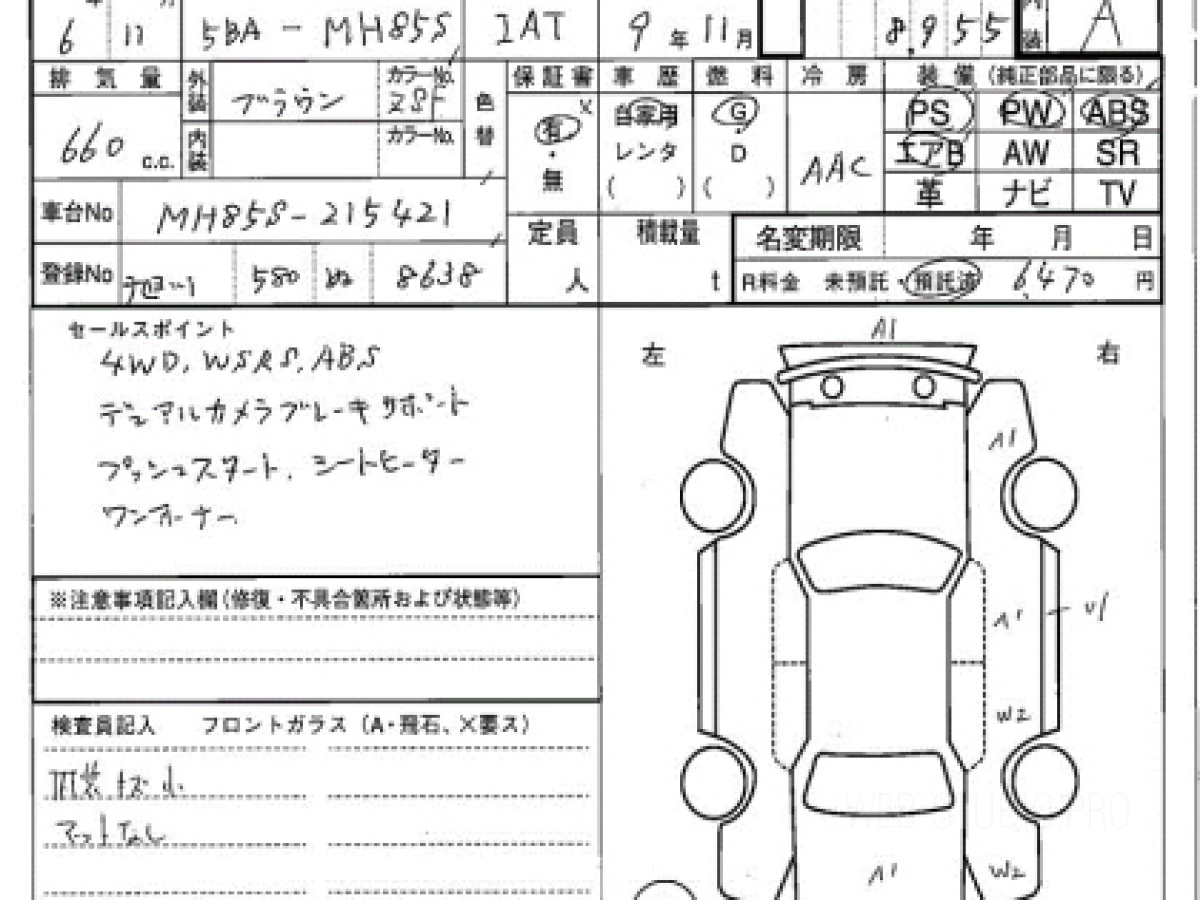 6 11 5BA - MH85S IAT 9年11月 8,955 内装 A
排気量 外装 ブラウン カラーNo. Z8F 色替 保証書 車歴 燃料 冷房 装備(純正部品に限る)
660 c.c. 内装 カラーNo. 有・無 自家用 レンタ ( ) G・D ( ) AAC PS PW ABS
エアB AW SR
革 ナビ TV
車台No MH85S-215421 定員 人 積載量 t 名変期限 年 月 日
登録No 580 ぬ 8638 R料金 未預託・預託済 6,470 円
セールスポイント
4WD, WSRS, ABS
デュアルカメラブレーキサポート
プッシュスタート、シートヒーター
ワンオーナー
左 右
A1
A1
A1 U1
W2
A1 W2
※注意事項記入欄(修復・不具合箇所および状態等)
検査員記入 フロントガラス(A・飛石、×要ス)
内装キズ小
マットなし
WEB STUDIO PRO